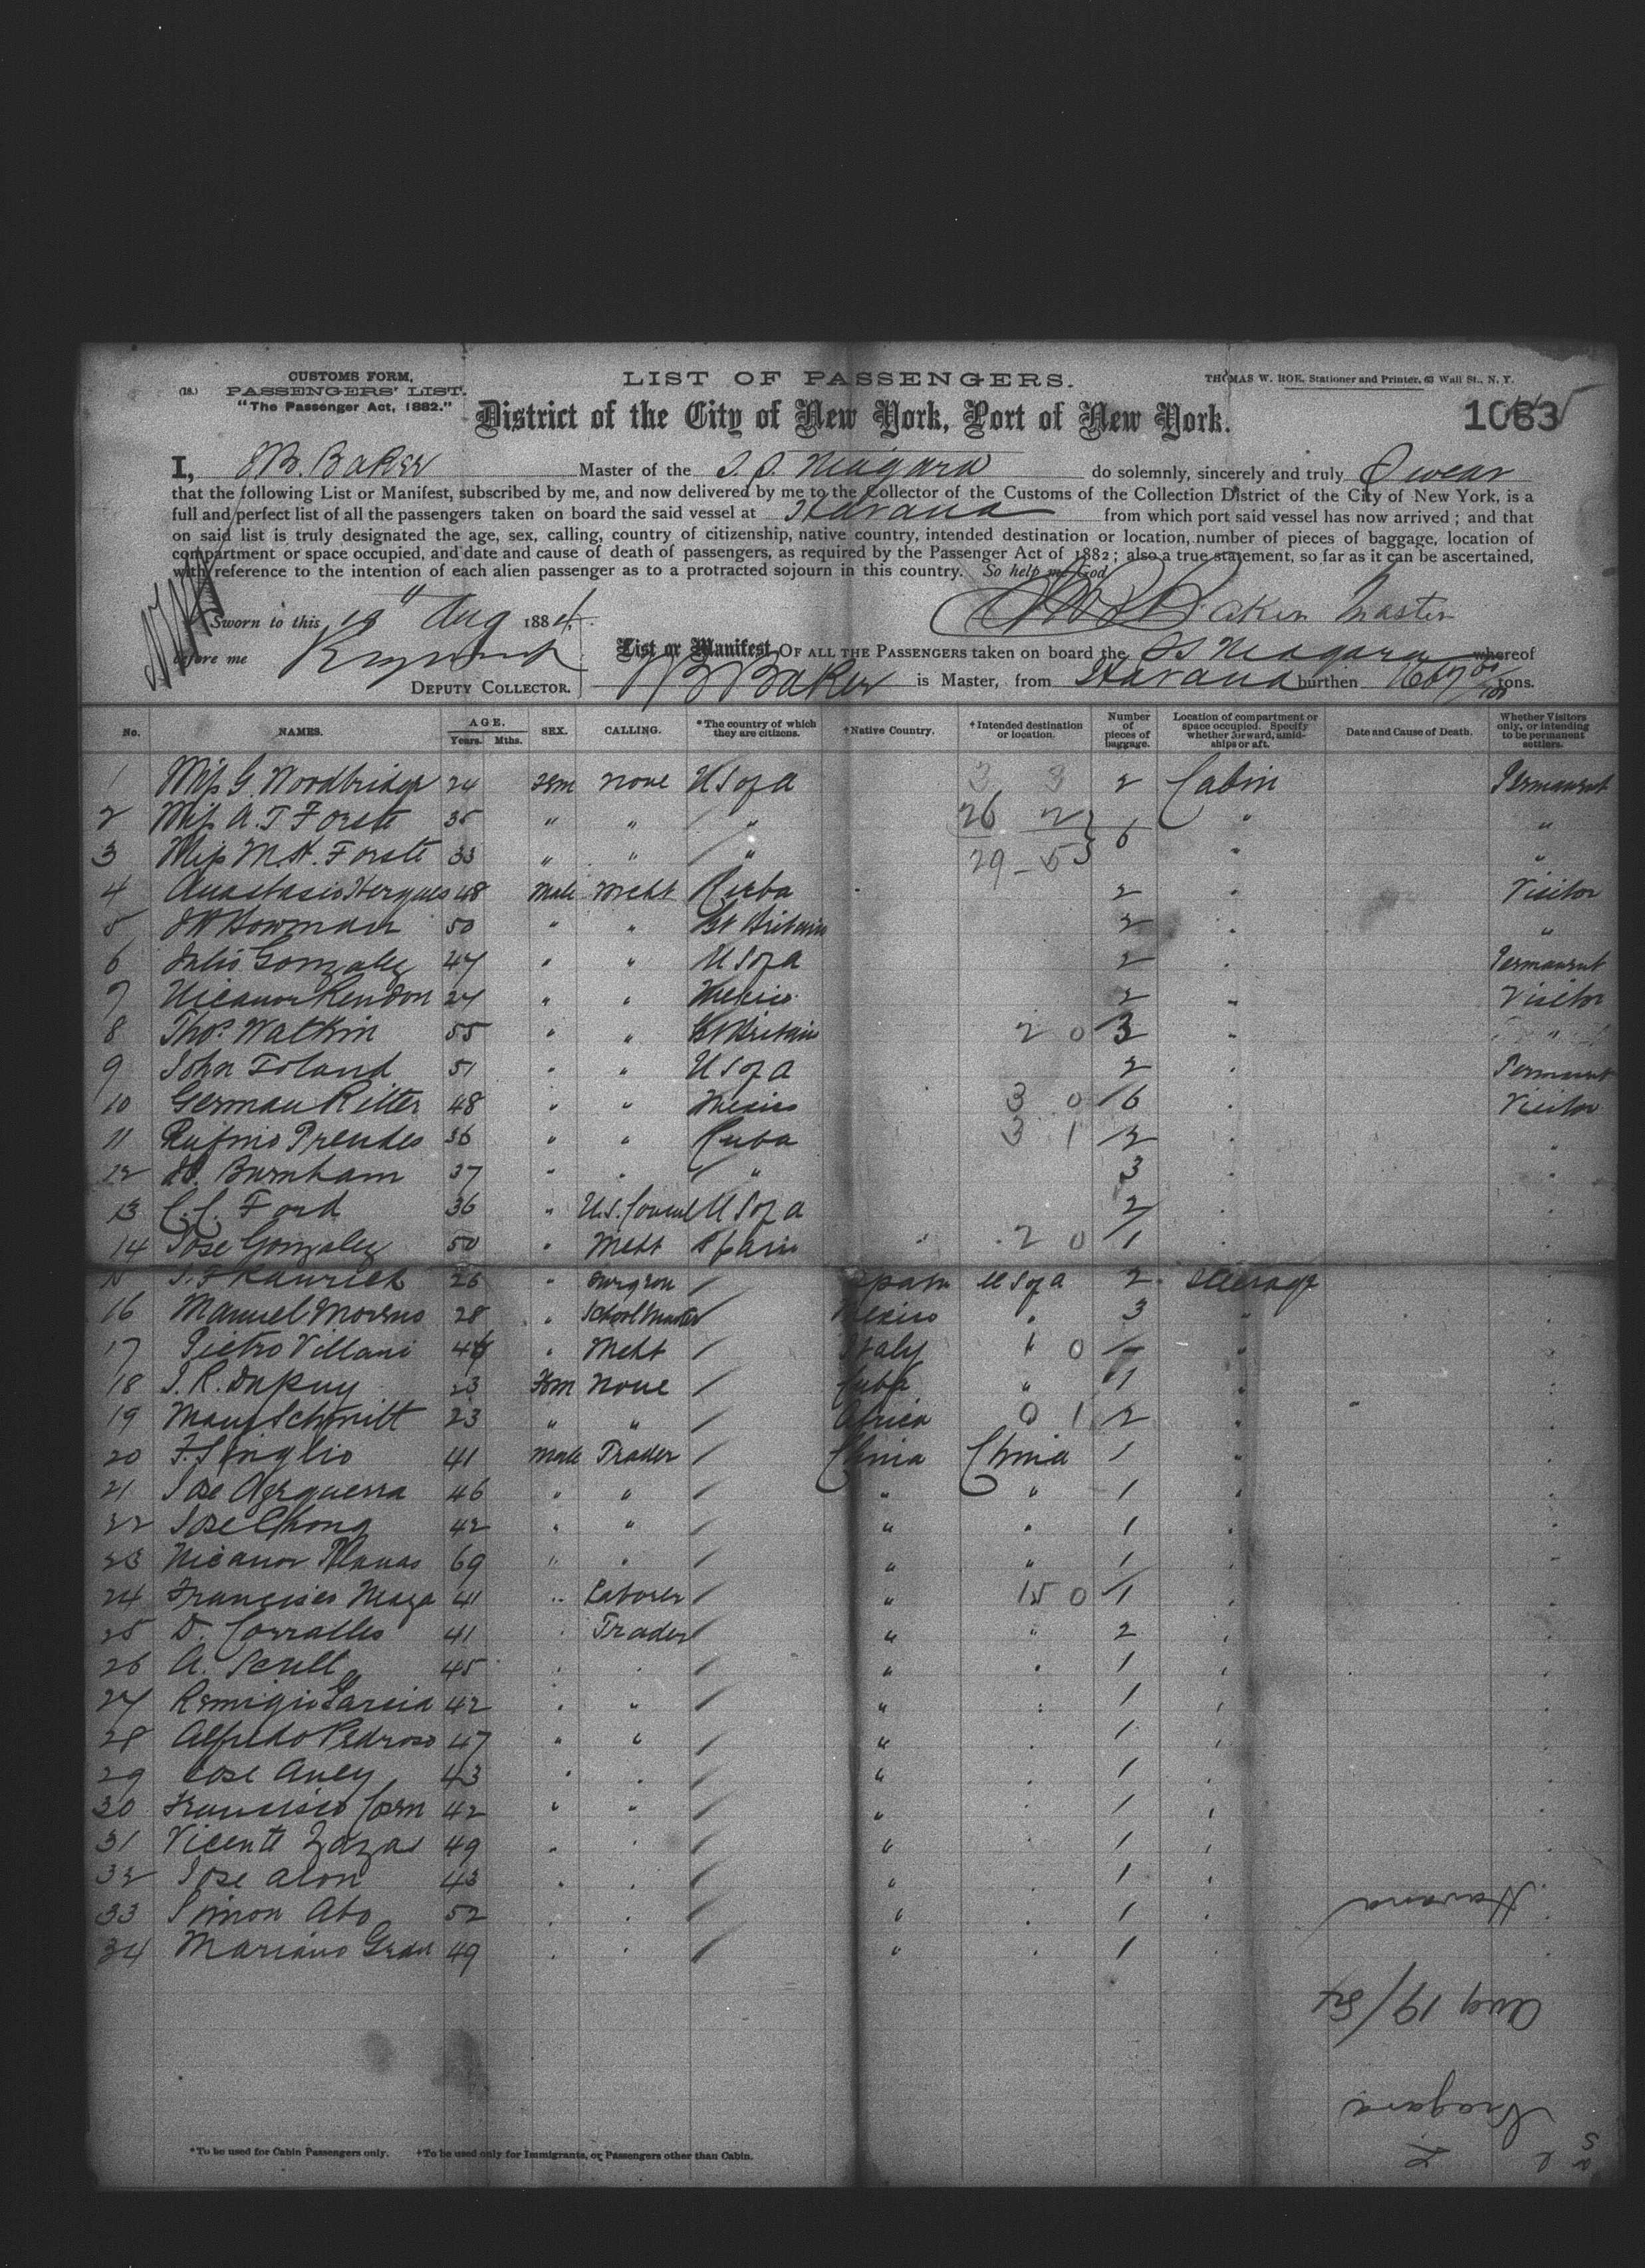 CUSTOMS FORM,
(18.) PASSENGERS' LIST.
"The Passenger Act, 1882."
LIST OF PASSENGERS.
THOMAS W. ROE, Stationer and Printer, 63 Wall St., N. Y.
District of the City of New York, Port of New York.
1083
I, Baker Master of the S.S. Niagara do solemnly, sincerely and truly Swear
that the following List or Manifest, subscribed by me, and now delivered by me to the Collector of the Customs of the Collection District of the City of New York, is a
full and perfect list of all the passengers taken on board the said vessel at Havana from which port said vessel has now arrived ; and that
on said list is truly designated the age, sex, calling, country of citizenship, native country, intended destination or location, number of pieces of baggage, location of
compartment or space occupied, and date and cause of death of passengers, as required by the Passenger Act of 1882 ; also a true statement, so far as it can be ascertained,
with reference to the intention of each alien passenger as to a protracted sojourn in this country. So help me God
Baker Master
Sworn to this 19" Aug 1884.
before me
DEPUTY COLLECTOR.
List or Manifest OF ALL THE PASSENGERS taken on board the SS Niagara whereof
Baker is Master, from Havana burthen 1667 tons.
No. NAMES. AGE. Years. Mths. SEX. CALLING. *The country of which they are citizens. †Native Country. †Intended destination or location. Number of pieces of baggage. Location of compartment or space occupied. Specify whether forward, amidships or aft. Date and Cause of Death. Whether Visitors only, or intending to be permanent settlers.
1 Miss G. Woodbridge 24 Fem none U S of A 3 3 2 Cabin Permanent
2 Miss A. T Forste 35 " " " 26 2 6 " "
3 Miss M. H. Forste 33 " " " 29 - 5 " "
4 Anastasio Hergues 48 Male Mcht Cuba 2 " Visitor
5 Bowman 50 " " Gt Britain 2 " "
6 Julio Gonzalez 47 " " U S of A 2 " Permanent
7 Nicanor Rendon 27 " " Mexico 2 " Visitor
8 Thos. Watkin 55 " " Gt Britain 2 0 3 " "
9 John Toland 51 " " U S of A 2 " Permanent
10 German Ritter 48 " " Mexico 3 0 6 " Visitor
11 Rufino Prendes 36 " " Cuba 3 1 2 " "
12 Burnham 37 " " " 3 " "
13 C. C. Ford 36 " U.S. Consul U S of A 2 " "
14 Jose Gonzalez 50 " Mcht Spain 2 0 1 " "
15 26 " Surgeon Spain U S of A 2 Steerage "
16 Manuel Moreno 28 " School Master Mexico " 3 " "
17 Pietro Villani 46 " Mcht Italy " 0 " "
18 Dupuy 23 Fem None Cuba " 1 " "
19 Schmitt 23 " " Africa 0 1 2 " "
20 41 Male Trader China China 1 " "
21 Jose 46 " " " " 1 " "
22 Jose Chong 42 " " " " 1 " "
23 Nicanor 69 " " " " 1 " "
24 Francisco Maza 41 " Laborer " 15 0 1 " "
25 D. Corralles 41 " Trader " " 2 " "
26 A. Scull 45 " " " " 1 " "
27 Remigio Garcia 42 " " " " 1 " "
28 Alfredo Pedroso 47 " " " " 1 " "
29 Jose 43 " " " " 1 " "
30 Francisco 42 " " " " 1 " "
31 Vicente Zazas 49 " " " " 1 " "
32 Jose Alon 43 " " " " 1 " "
33 Simon Abo 52 " " " " 1 " "
34 Mariano Grau 49 " " " " 1 " "
Havana
Aug 19/84
Niagara
*To be used for Cabin Passengers only. †To be used only for Immigrants, or Passengers other than Cabin.